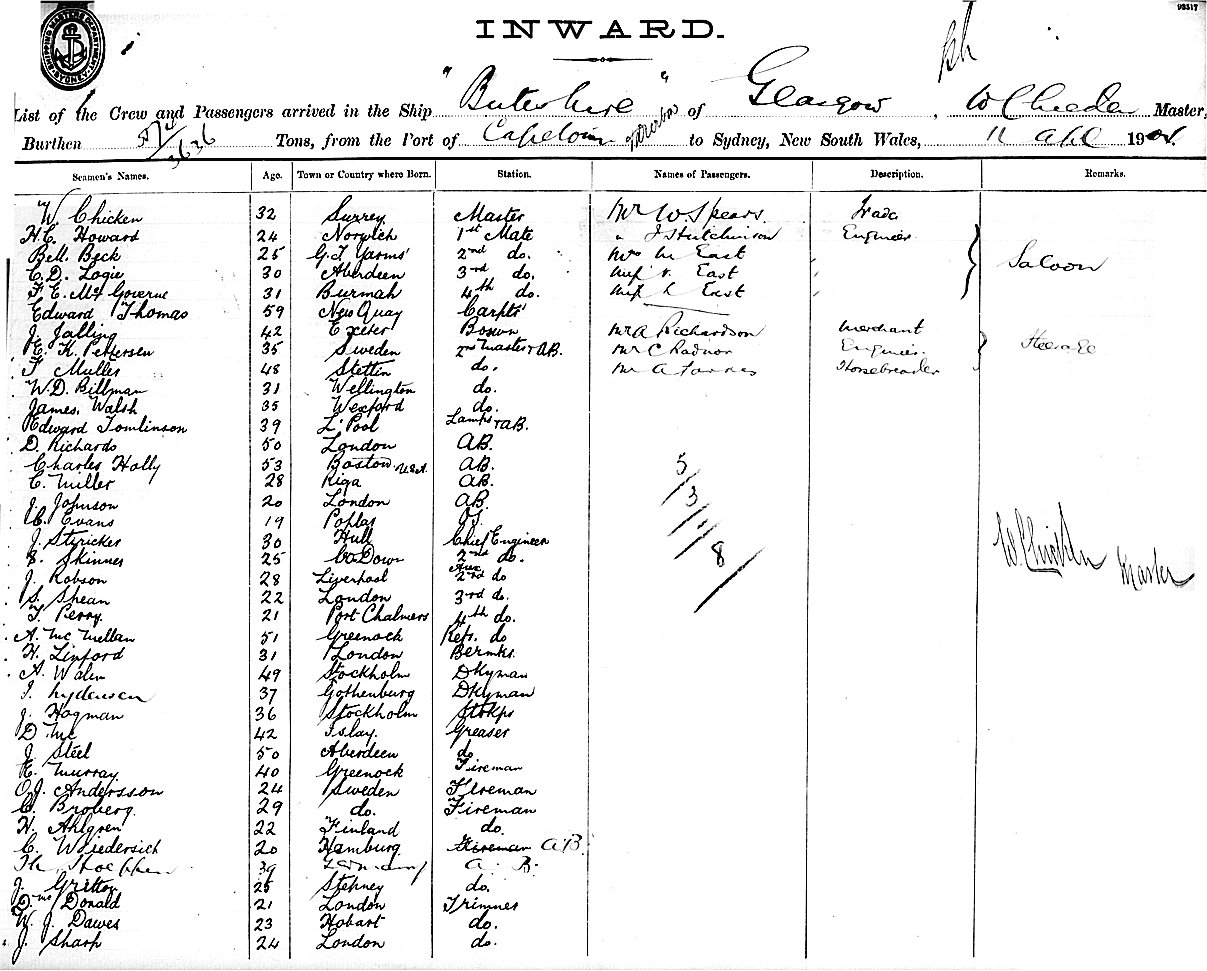 93317
SHIPPING MASTERS DEPARTMENT SYDNEY
INWARD.
List of the Crew and Passengers arrived in the Ship "Buteshire" of Glasgow, Master,
Burthen 5574/3636 Tons, from the Port of Capetown & Durban to Sydney, New South Wales, 11 Apl 190
Seamen's Names. Age. Town or Country where Born. Station. Names of Passengers. Description. Remarks.
W. Chicken 32 Surrey Master Mr W. Spears
H.C. Howard 24 Norwich 1st Mate " J Hutchinson Engineer
Bell. Beck 25 Gt Yarms' 2nd do. Mrs M East
C.D. Logie 30 Aberdeen 3rd do. Miss East Saloon
F.E. Mc Governe 31 Burmah 4th do. Miss East
Edward Thomas 59 New Quay Carptr
J. Jalling 42 Exeter Bosun Mr A Richardson Merchant
E. K. Pettersen 35 Sweden 2nd Master & AB. Mr C Radnor Engineer Steerage
F. Muller 48 Stettin do. Mr A Horsebreader
W.D. Billman 31 Wellington do.
James Walsh 35 Wexford do.
Edward Tomlinson 39 L'Pool Lamps & AB.
D. Richards 50 London AB.
Charles Holly 53 Boston U.S.A. AB.
C. Miller 28 Riga AB.
J. Johnson 20 London AB.
C. Evans 19 Poplar OS.
J. Stricker 30 Hull Chief Engineer
S. Skinner 25 Co Down 2nd do.
J. Robson 28 Liverpool Aux 2nd do
S. Shean 22 London 3rd do.
T. Perry 21 Port Chalmers 4th do.
A. Mc Mellan 51 Greenock Refr. do
H. Linford 31 London
A. Walin 49 Stockholm Dkyman
37 Gothenburg Dkyman
J. Hagman 36 Stockholm Stokps
D. Mc 42 Islay. Greaser
J. Steel 50 Aberdeen do
R. Murray. 40 Greenock Fireman
O.J. Andersson 24 Sweden Fireman
C. Broberg. 29 do. Fireman
H. Ahlgren 22 Finland do.
C. Wiedersich 20 Hamburg Fireman A.B.
39 Germany A. B.
J. Gritton 25 Stepney do.
D. Mc Donald 21 London Trimmer
W. J. Dawes 23 Hobart do.
J. Sharp 24 London do.
5/3/11/8
W. Chicken Master